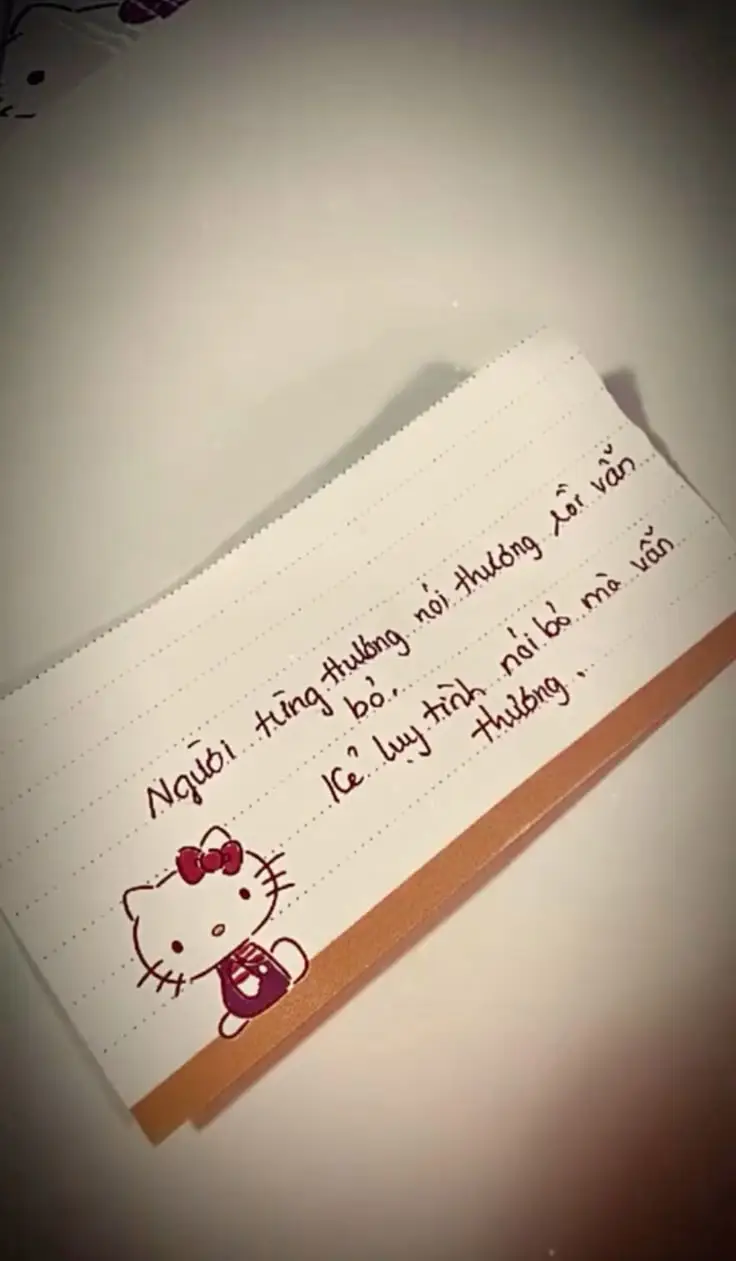 Người từng thương nói thương rồi vẫn
bỏ.
Kẻ lụy tình nói bỏ mà vẫn
thương.